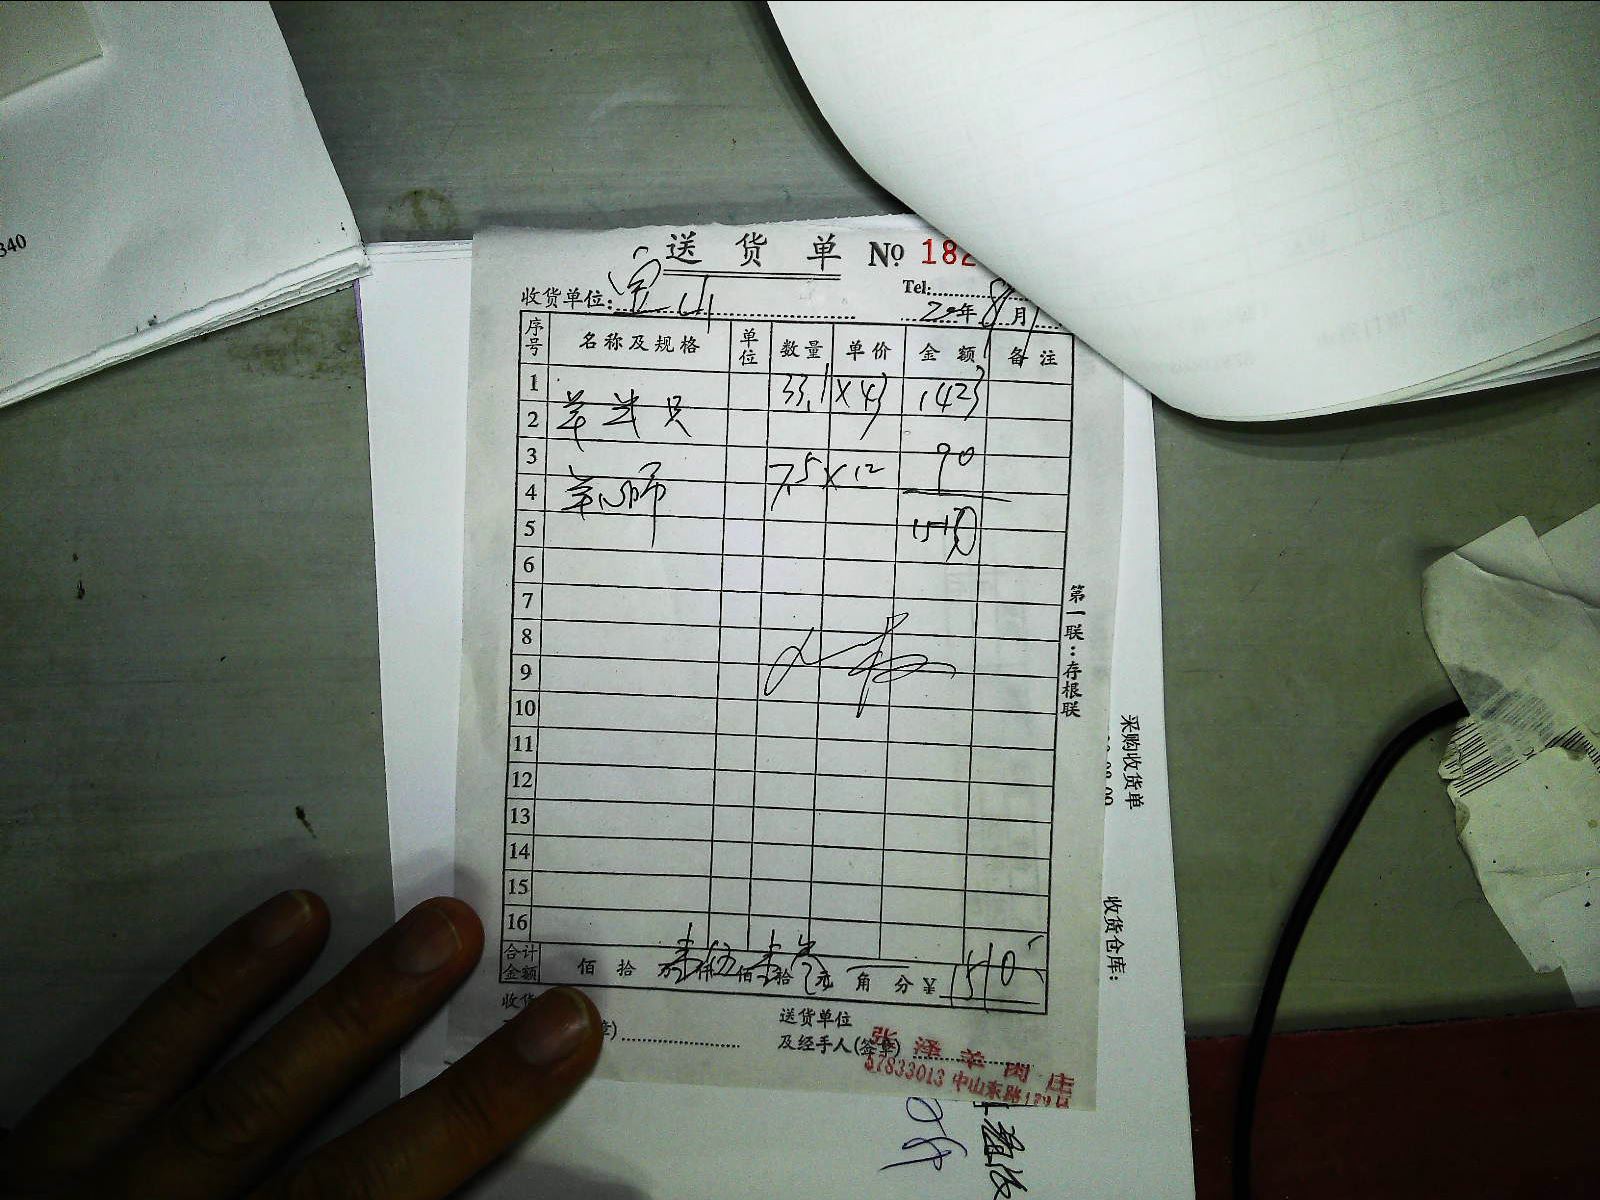 340
送货单 № 182
Tel:
收货单位: 宝山 20年8月1
序号 名称及规格 单位 数量 单价 金额 备注
1 33.1 × 43 1423
2 羊半只
3 7.5 × 12 90
4 羊心肺
5 1510
6
7
8
9
10
11
12
13
14
15
16
合计金额 佰 拾 万壹仟伍佰壹拾元 角 分 ¥ 1510
收货 章)
送货单位
及经手人(签章)
张泽羊肉庄
57833013 中山东路
第一联:存根联
采购收货单
收货仓库: